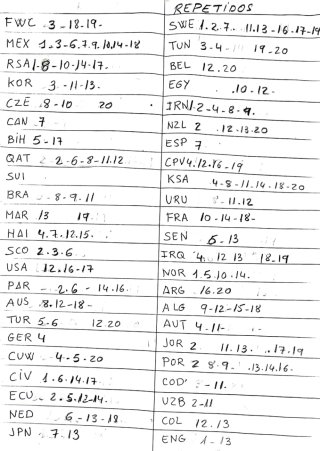 REPETIDOS
FWC 3-18-19-
MEX 1-3-6.7.9.10.14-18
RSA 1-8-10-14-17.
KOR 3-11-13.
CZE 8-10 20
CAN 7
BiH 5-17
QAT 2-6-8-11.12
SUI
BRA -8-9.11
MAR 13 19
HAI 4.7.12.15.
SCO 2.3.6
USA 12.16-17
PAR - 2.6 - 14.16.
AUS 8.12-18-
TUR 5-6 12 20
GER 4
CUW -4-5-20
CiV 1.6.14.17
ECU 2.5.12-14.
NED 6-13-18
JPN 7.13
SWE 1.2.7. 11.13-16-17-19
TUN 3-4 19-20
BEL 12.20
EGY .10.12-
IRN 1-2-4-8-9.
NZL 2 .12.13.20
ESP 7
CPV 4.12.16-19
KSA 4-8-11.14.18-20
URU -11.12
FRA 10-14-18-
SEN 6-13
IRQ 4. 12 13 18-19
NOR 1.5.10.14.
ARG 16.20
ALG 9-12-15-18
AUT 4-11-
JOR 2 11.13. .17.19
POR 2 8.9 .13.14.16.
COD -11.
UZB 2-11
COL 12.13
ENG 1-13